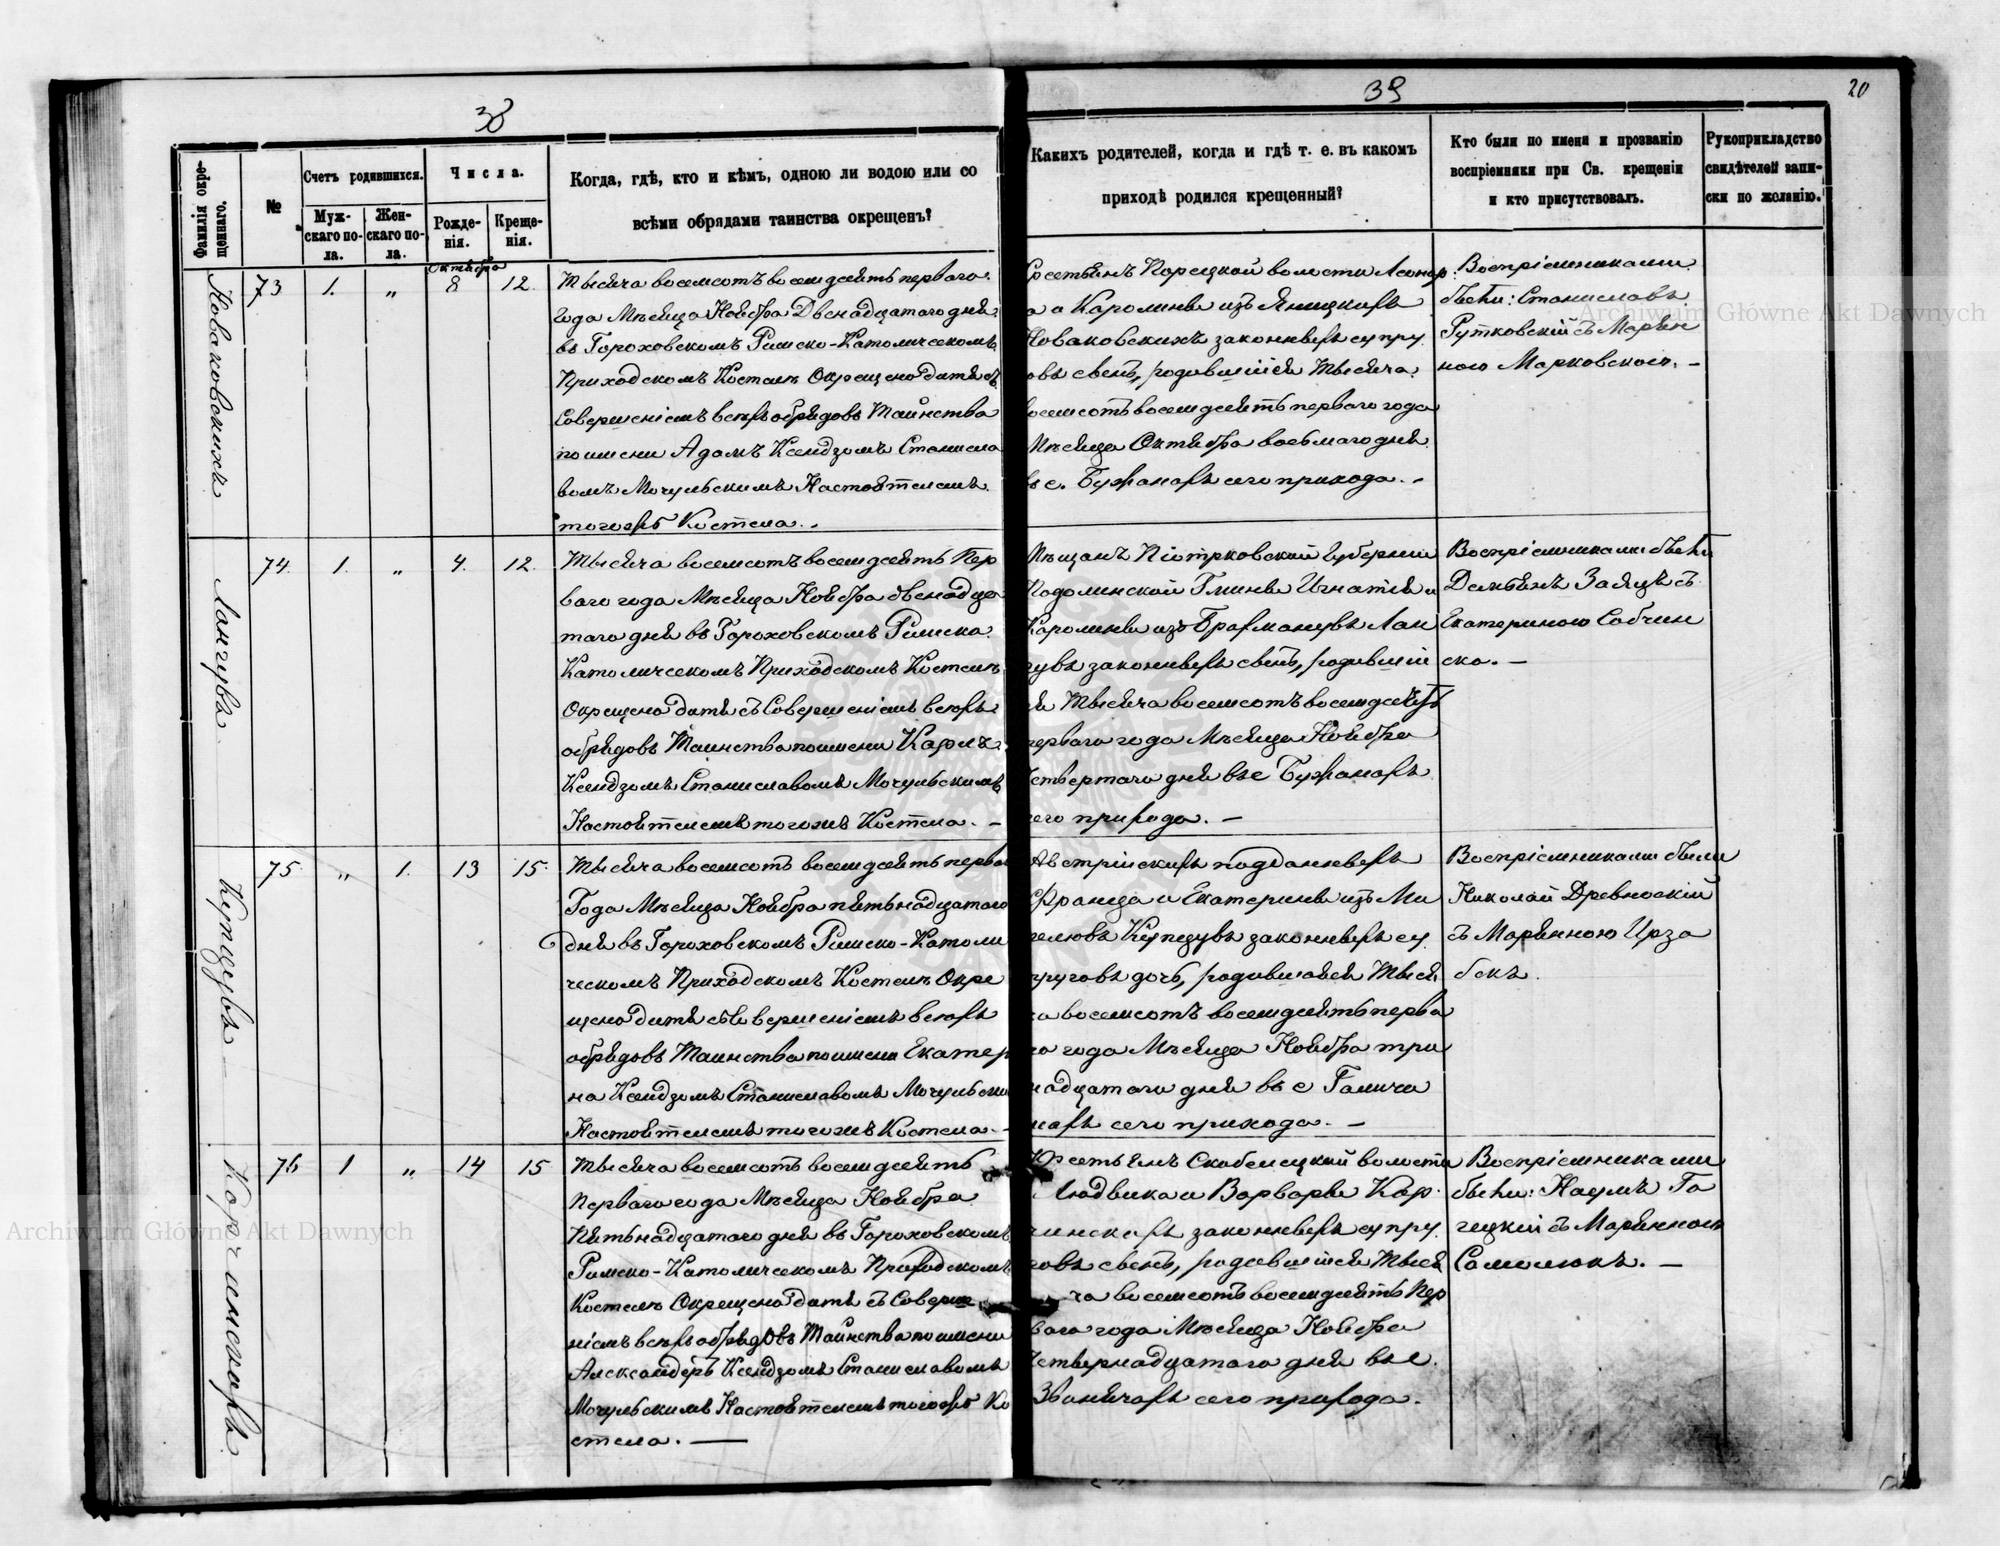 38
39
20
Фамилія окрещеннаго.
№
Счетъ родившихся.
Мужскаго пола.
Женскаго пола.
Числа.
Рожденія.
Крещенія.
Когда, гдѣ, кто и кѣмъ, одною ли водою или со
всѣми обрядами таинства окрещенъ?
Какихъ родителей, когда и гдѣ т. е. въ какомъ
приходѣ родился крещенный?
Кто были по имени и прозванію
воспріемники при Св. крещеніи
и кто присутствовалъ.
Рукоприкладство
свидѣтелей запи-
ски по желанію.
Новаковскихъ
73
1.
„
Октября
8
12.
Тысяча восемсотъ восемдсятъ перваго
года Мѣсяца Ноября Двенадцатого дня
въ Гороховскомъ Римско-Католическомъ
Приходскомъ Костелѣ Окрещено дитя съ
Совершеніемъ всѣхъ обрядовъ Таинства
по имени Адамъ Ксендзомъ Станисла
вомъ Мочульскимъ Настоятелемъ
тогожъ Костела. -
рестьянъ Порецкой волости Леонар
а и Каролины изъ Яницкихъ
Новаковскихъ законныхъ супру
овъ сынъ, родившійся Тысяча
восемсотъ восемдсятъ перваго года
Мѣсяца Октября восьмаго дня
въ с. Бужанахъ сего прихода. -
Воспріемниками
были: Станиславъ
Рутковскій съ Марян
ною Марковскою. -
Лангувъ
74.
1.
„
4.
12.
Тысяча восемсотъ восемдсятъ Пер
ваго года Мѣсяца Ноября двенадца
таго дня въ Гороховскомъ Римско
Католическомъ Приходскомъ Костелѣ
Окрещено дитя съ Совершеніемъ всѣхъ
обрядовъ Таинства по имени Карлъ
Ксендзомъ Станиславомъ Мочульскимъ
Настоятелемъ тогожъ Костела. -
Мѣщанъ Піотрковской Губерніи
Подолинской Гмины Игнатія и
Каролины изъ Лан
гувъ законныхъ сынъ, родившій
ся Тысяча восемсотъ восемдсятъ
перваго года Мѣсяца Ноября
Четвертаго дня въ с Бужанахъ
сего прихода. -
Воспріемниками были
Дамьянъ Заяцъ съ
Екатериною Собчин
ско. -
Купцувъ -
75
„
1.
13
15.
Тысяча восемсотъ восемдсятъ перва
Года Мѣсяца Ноября пятьнадцатого
дня въ Гороховскомъ Римско-Католи
ческомъ Приходскомъ Костелѣ Окре
щено дитя съ Совершеніемъ всѣхъ
обрядовъ Таинства по имени Екатер
на Ксендзомъ Станиславомъ Мочульски
Настоятелемъ тогожъ Костела. -
Австрійскихъ подданныхъ
Франца и Екатерины изъ Ми
гелювъ Купцувъ законныхъ су
пруговъ дочь, родившаяся Тыся
ча восемсотъ восемдсятъ перва
го года Мѣсяца Ноября три
надцатаго дня въ с Галичи
нахъ сего прихода. -
Воспріемниками были
Николай Древноскій
съ Марянною Ирза
бекъ.
Корчинскихъ
76
1
„
14
15
Тысяча восемсотъ восемдсятъ
Перваго года Мѣсяца Ноября
Пятьнадцатаго дня въ Гороховскомъ
Римско-Католическомъ Приходскомъ
Костелѣ Окрещено дитя съ Соверше
ніемъ всѣхъ обрядовъ Таинства по имени
Александеръ Ксендзомъ Станиславомъ
Мочульскимъ Настоятелемъ тогожъ Ко
стела. -
Крестьянъ Скобелецкой волости
Людвика и Варвары Кор
чинскихъ законныхъ супру
говъ сынъ, родившійся Тыся
ча восемсотъ восемдсятъ Пер
ваго года Мѣсяца Ноября
Четвернадцатаго дня въ с.
Звенячахъ сего прихода.
Воспріемниками
были: Наумъ Го
рецкій съ Марянною
Самолюкъ. -
Archiwum Główne Akt Dawnych
Archiwum Główne Akt Dawnych